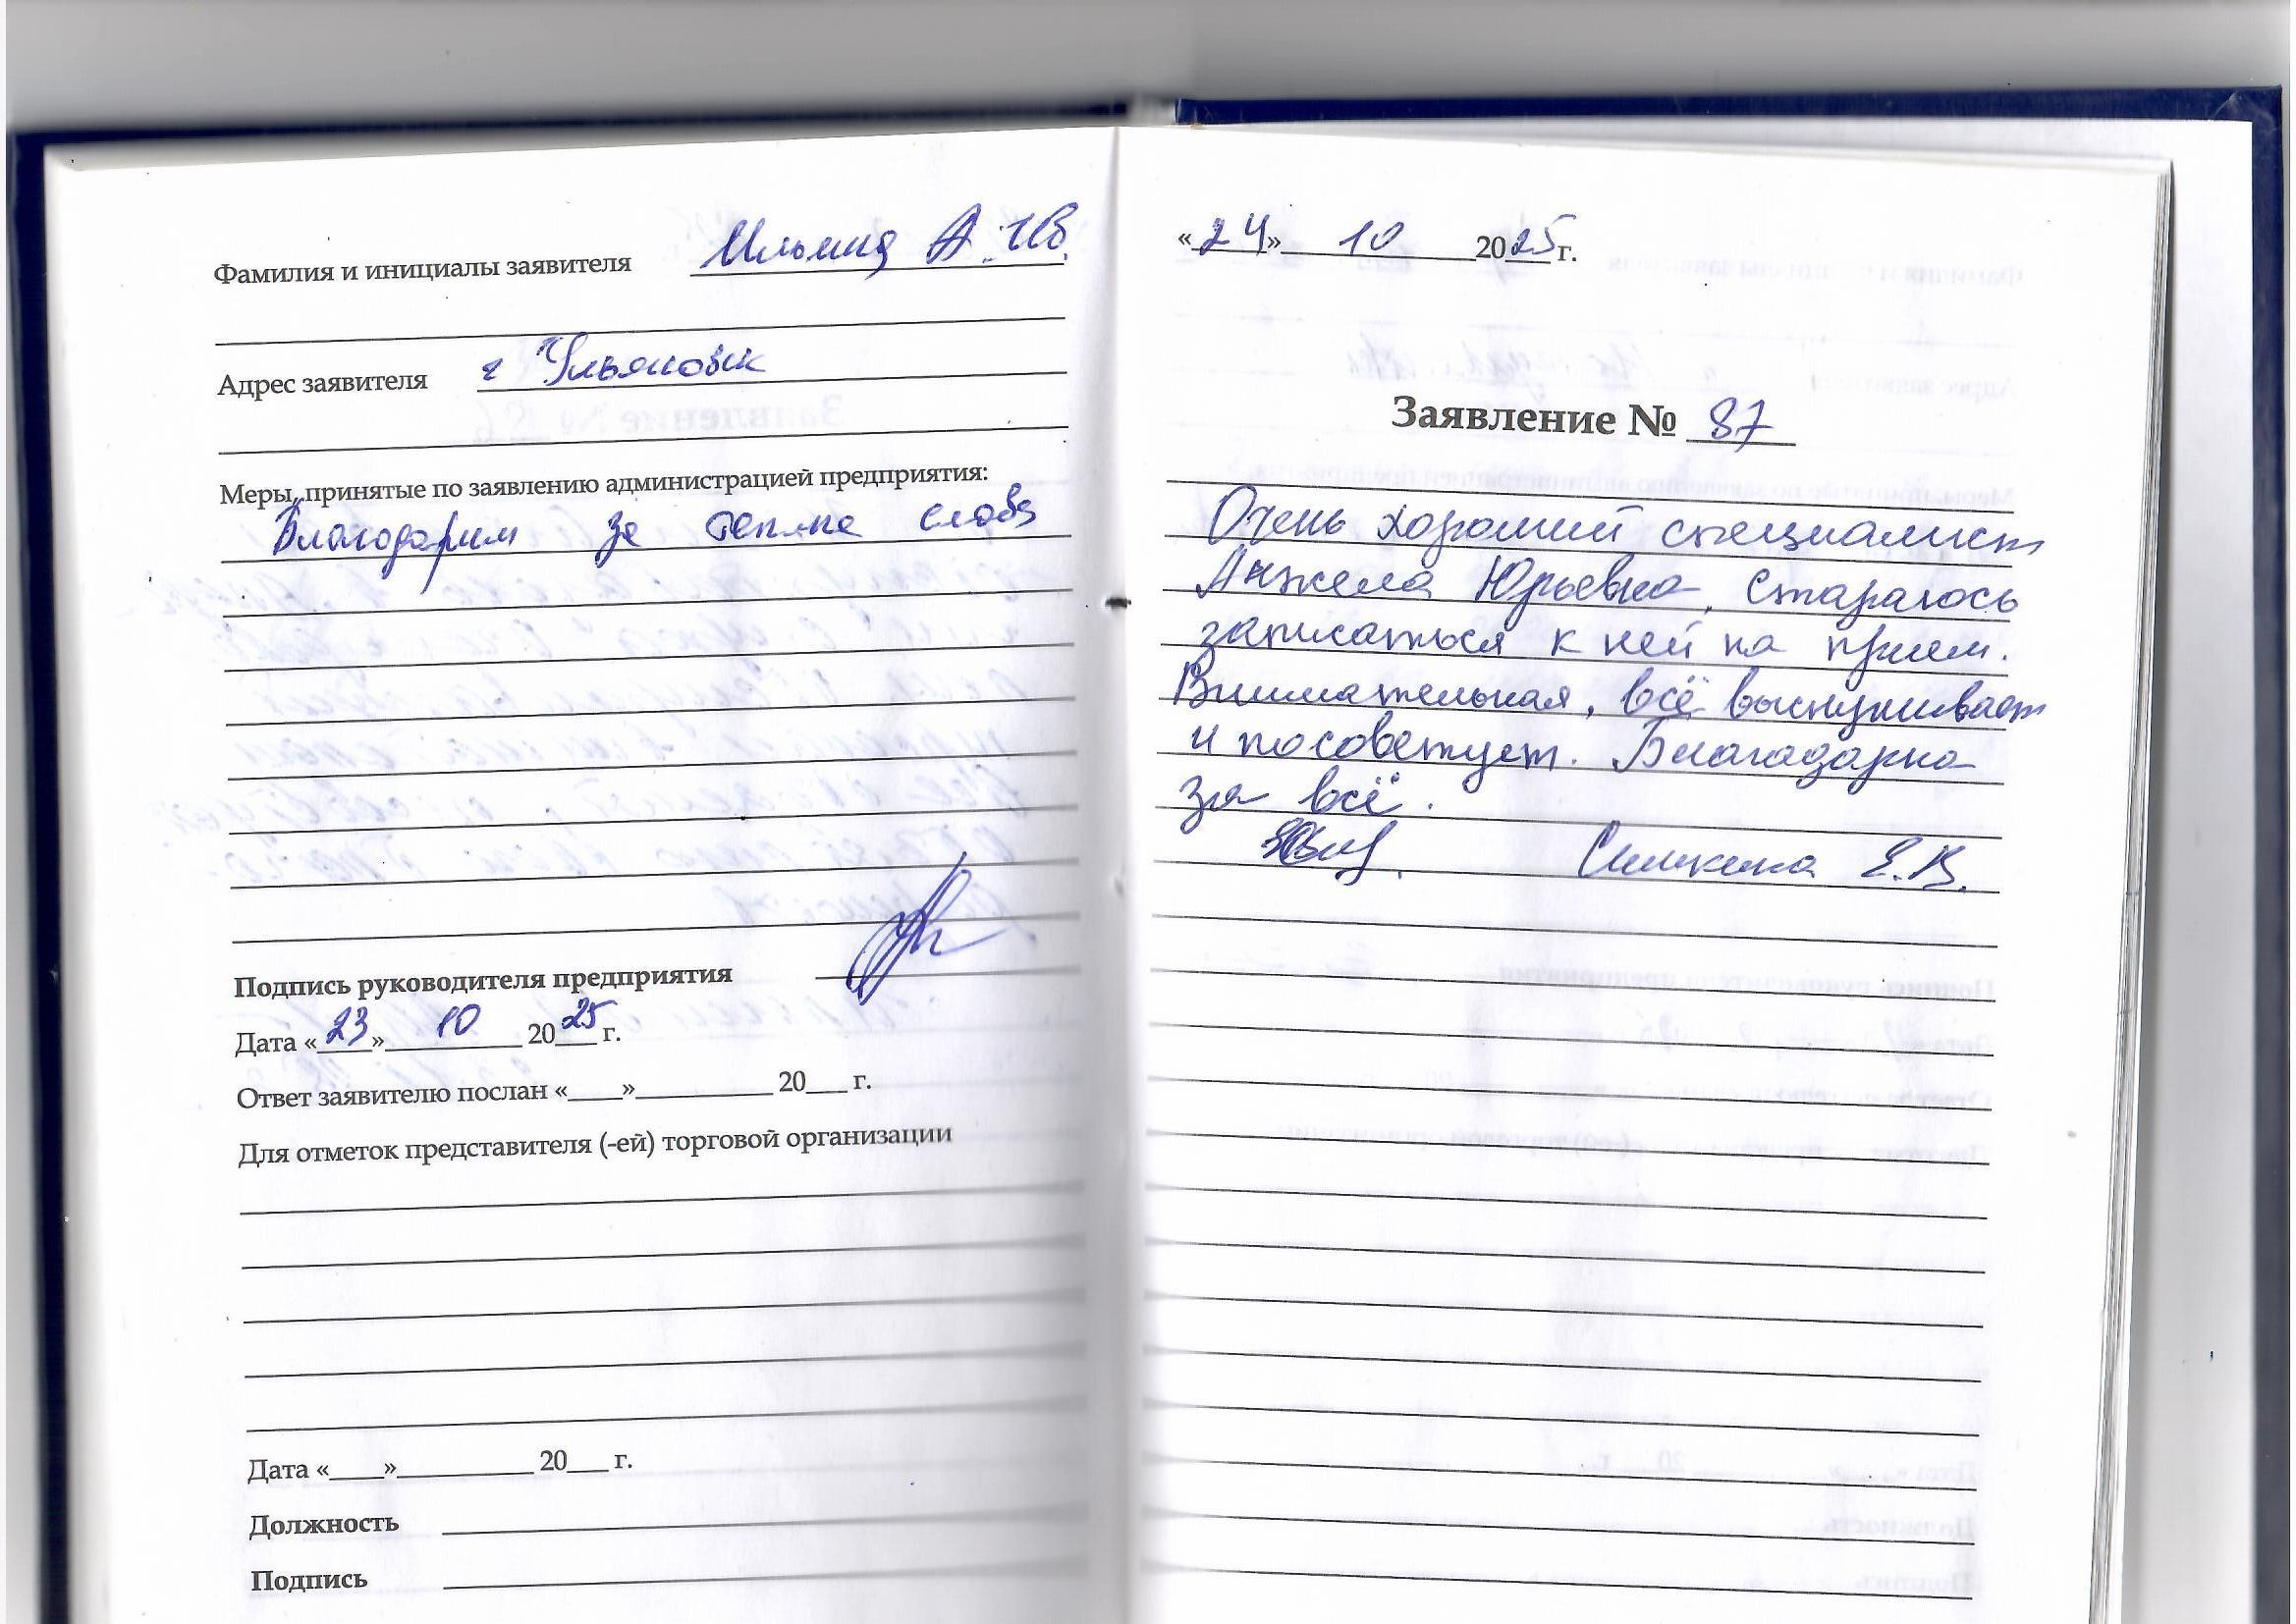 Фамилия и инициалы заявителя
Адрес заявителя г Ульяновск
Меры, принятые по заявлению администрацией предприятия:
Благодарим за теплые слова
Подпись руководителя предприятия
Дата «23» 10 2025 г.
Ответ заявителю послан «____»__________ 20___ г.
Для отметок представителя (-ей) торговой организации
Дата «____»__________ 20___ г.
Должность
Подпись
«24» 10 2025 г.
Заявление № 87
Очень хороший специалист
Анжела Юрьевна, стараюсь
записаться к ней на прием.
Внимательная, всё выслушивает
и посоветует. Благадарна
за всё.
Симкина Е.В.